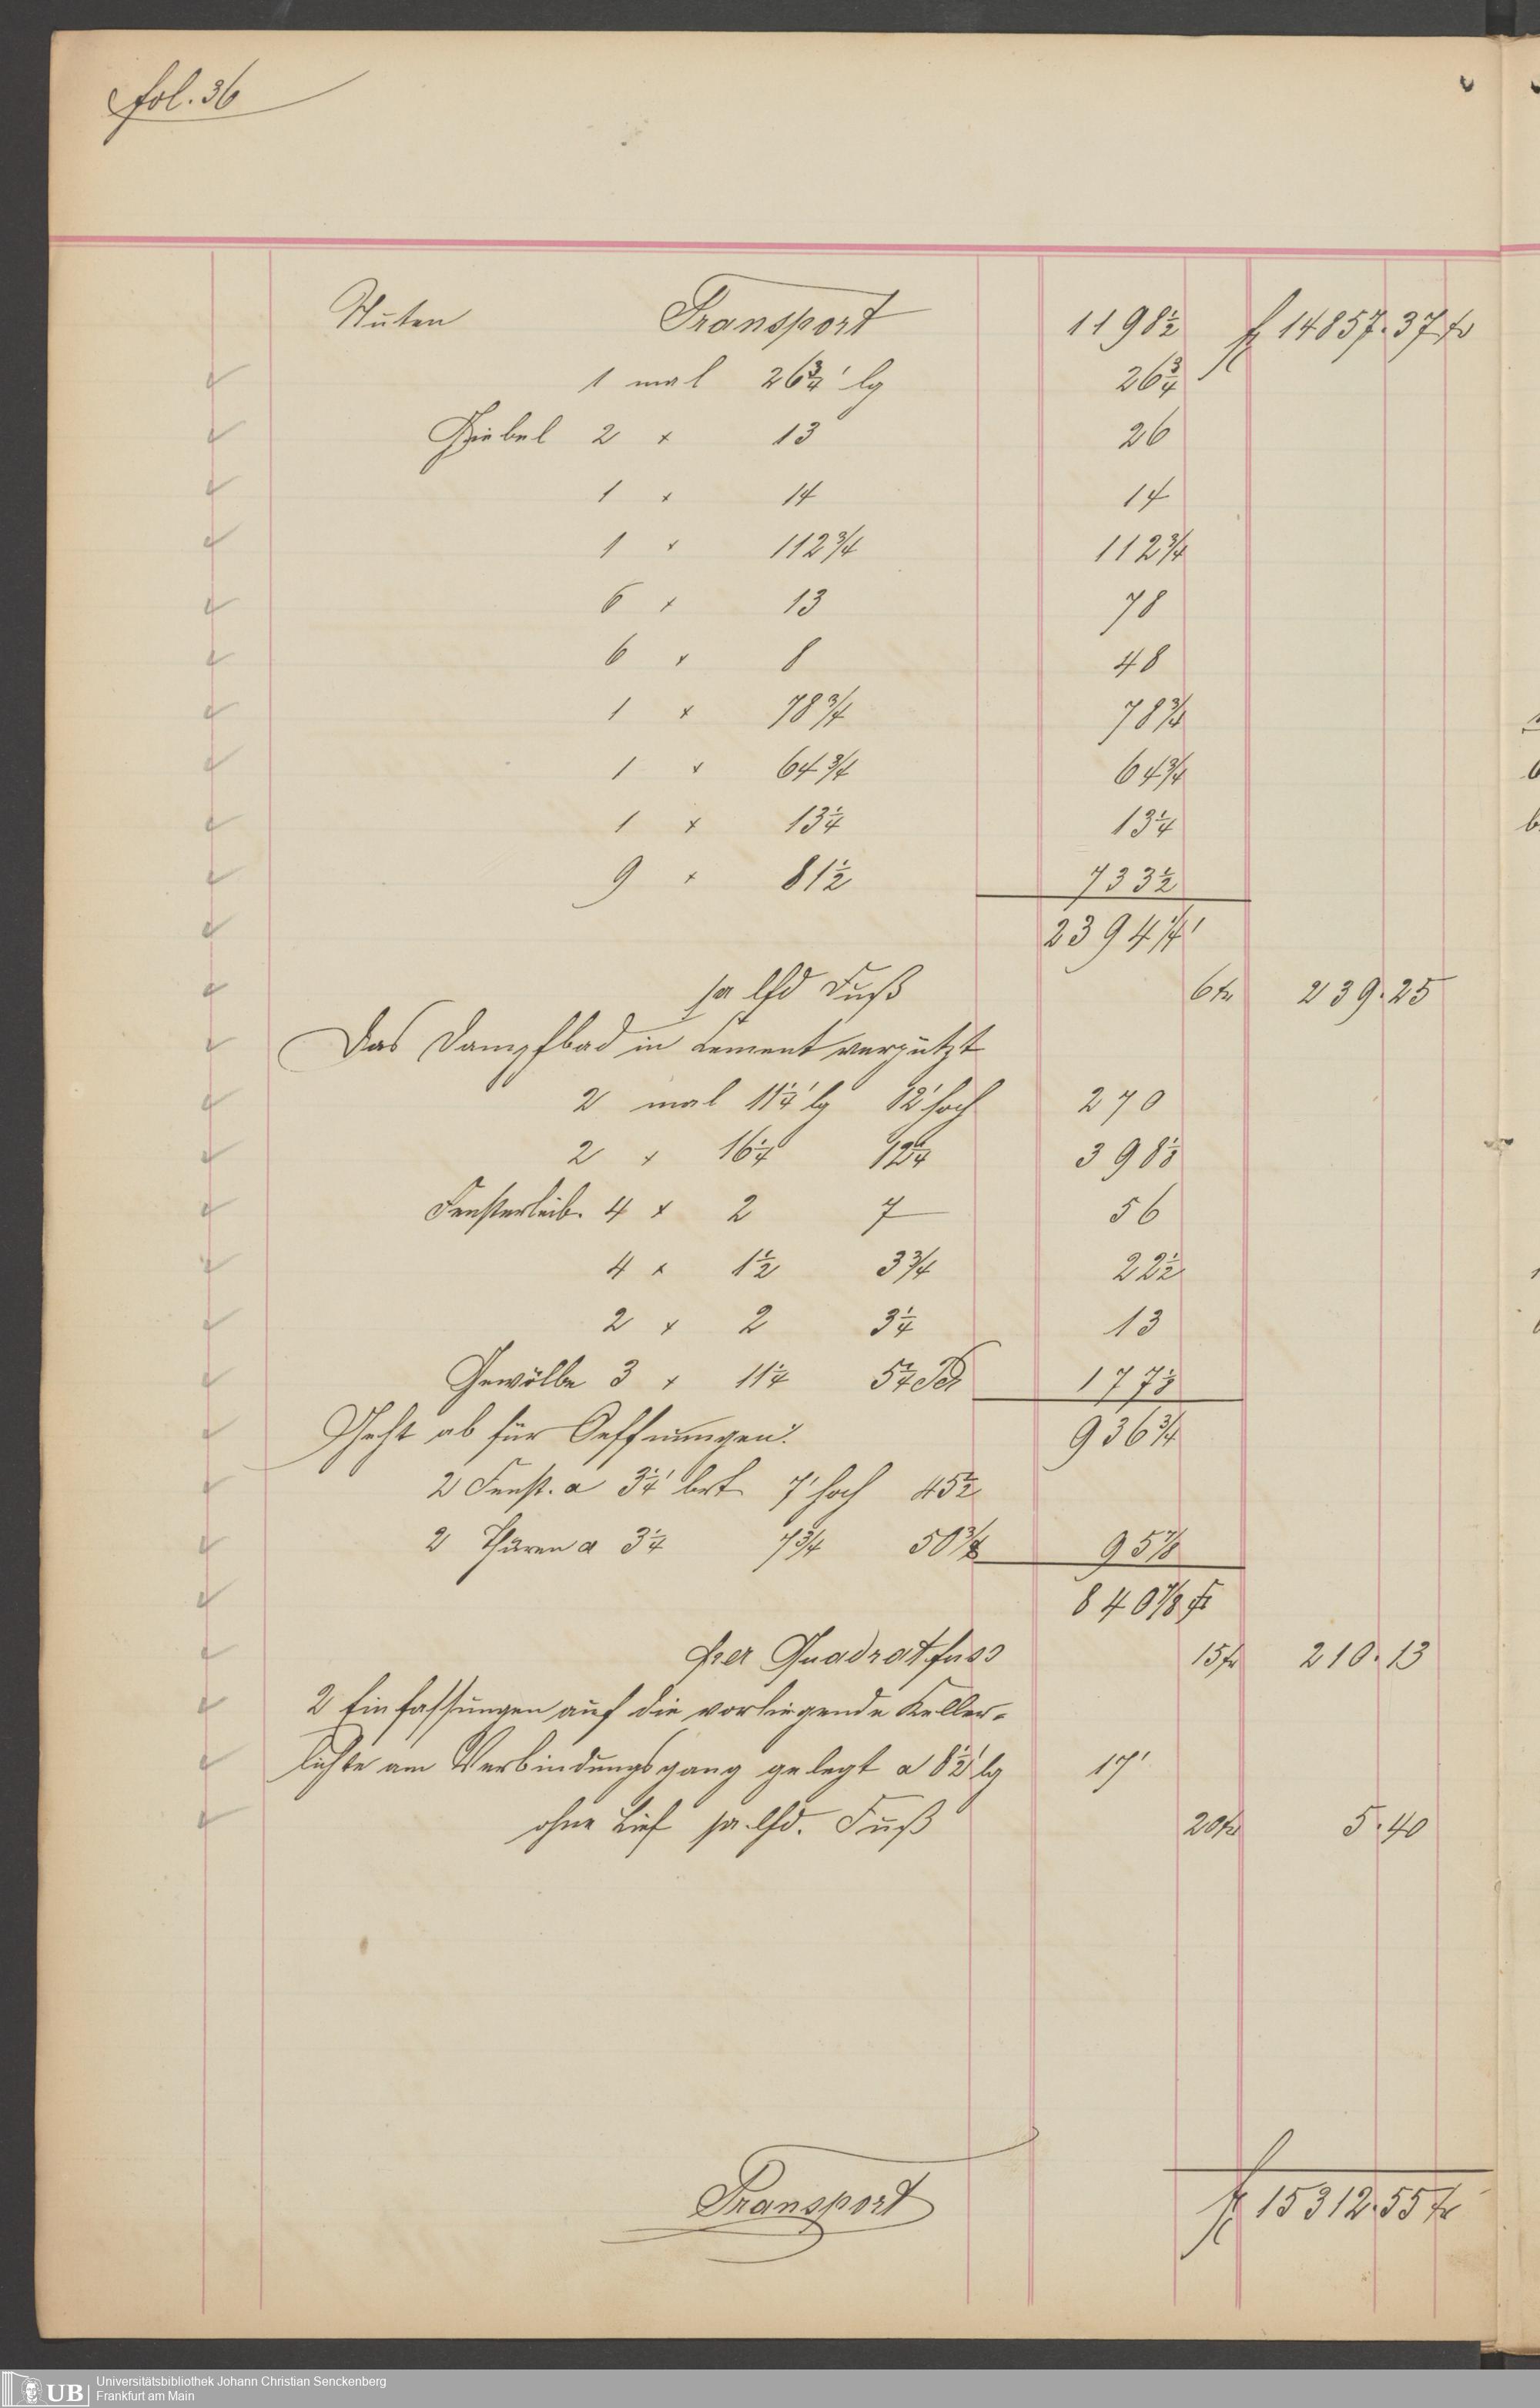 fol. 36
Nuten Transport 1198½ fl 14857.37 kr
1 mal 26¾' lg 26¾
Giebel 2 " 13 26
1 " 14 14
1 " 112¾ 112¾
6 " 13 78
6 " 8 48
1 " 78¾ 78¾
1 " 64¾ 64¾
1 " 13¼ 13¼
9 " 81½ 733½
2394¼'
pr lfd Fuß 6 kr 239.25
Das Dampfbad in Cement verputzt
2 mal 11¼' lg 12' hoch 270
2 " 16¼ 12¼ 398⅛
Fensterleib. 4 " 2 7 56
4 " 1½ 3¾ 22½
2 " 2 3¼ 13
Gewölbe 3 " 11¼ 5¼ 177⅛
Geht ab für Oeffnungen:
936¾
2 Fenst. a 3¼' brt 7' hoch 45½
2 Thüren a 3¼ 7¾ 50⅜ 95⅞
840⅞
per Quadratfuss 15 kr 210.13
2 Einfassungen auf die vorliegende Keller-
lichte am Verbindungsgang gelegt a 8½' lg 17'
ohne Lief pr. lfd. Fuß 20 kr 5.40
Transport fl 15312.55 kr
UB Universitätsbibliothek Johann Christian Senckenberg
Frankfurt am Main